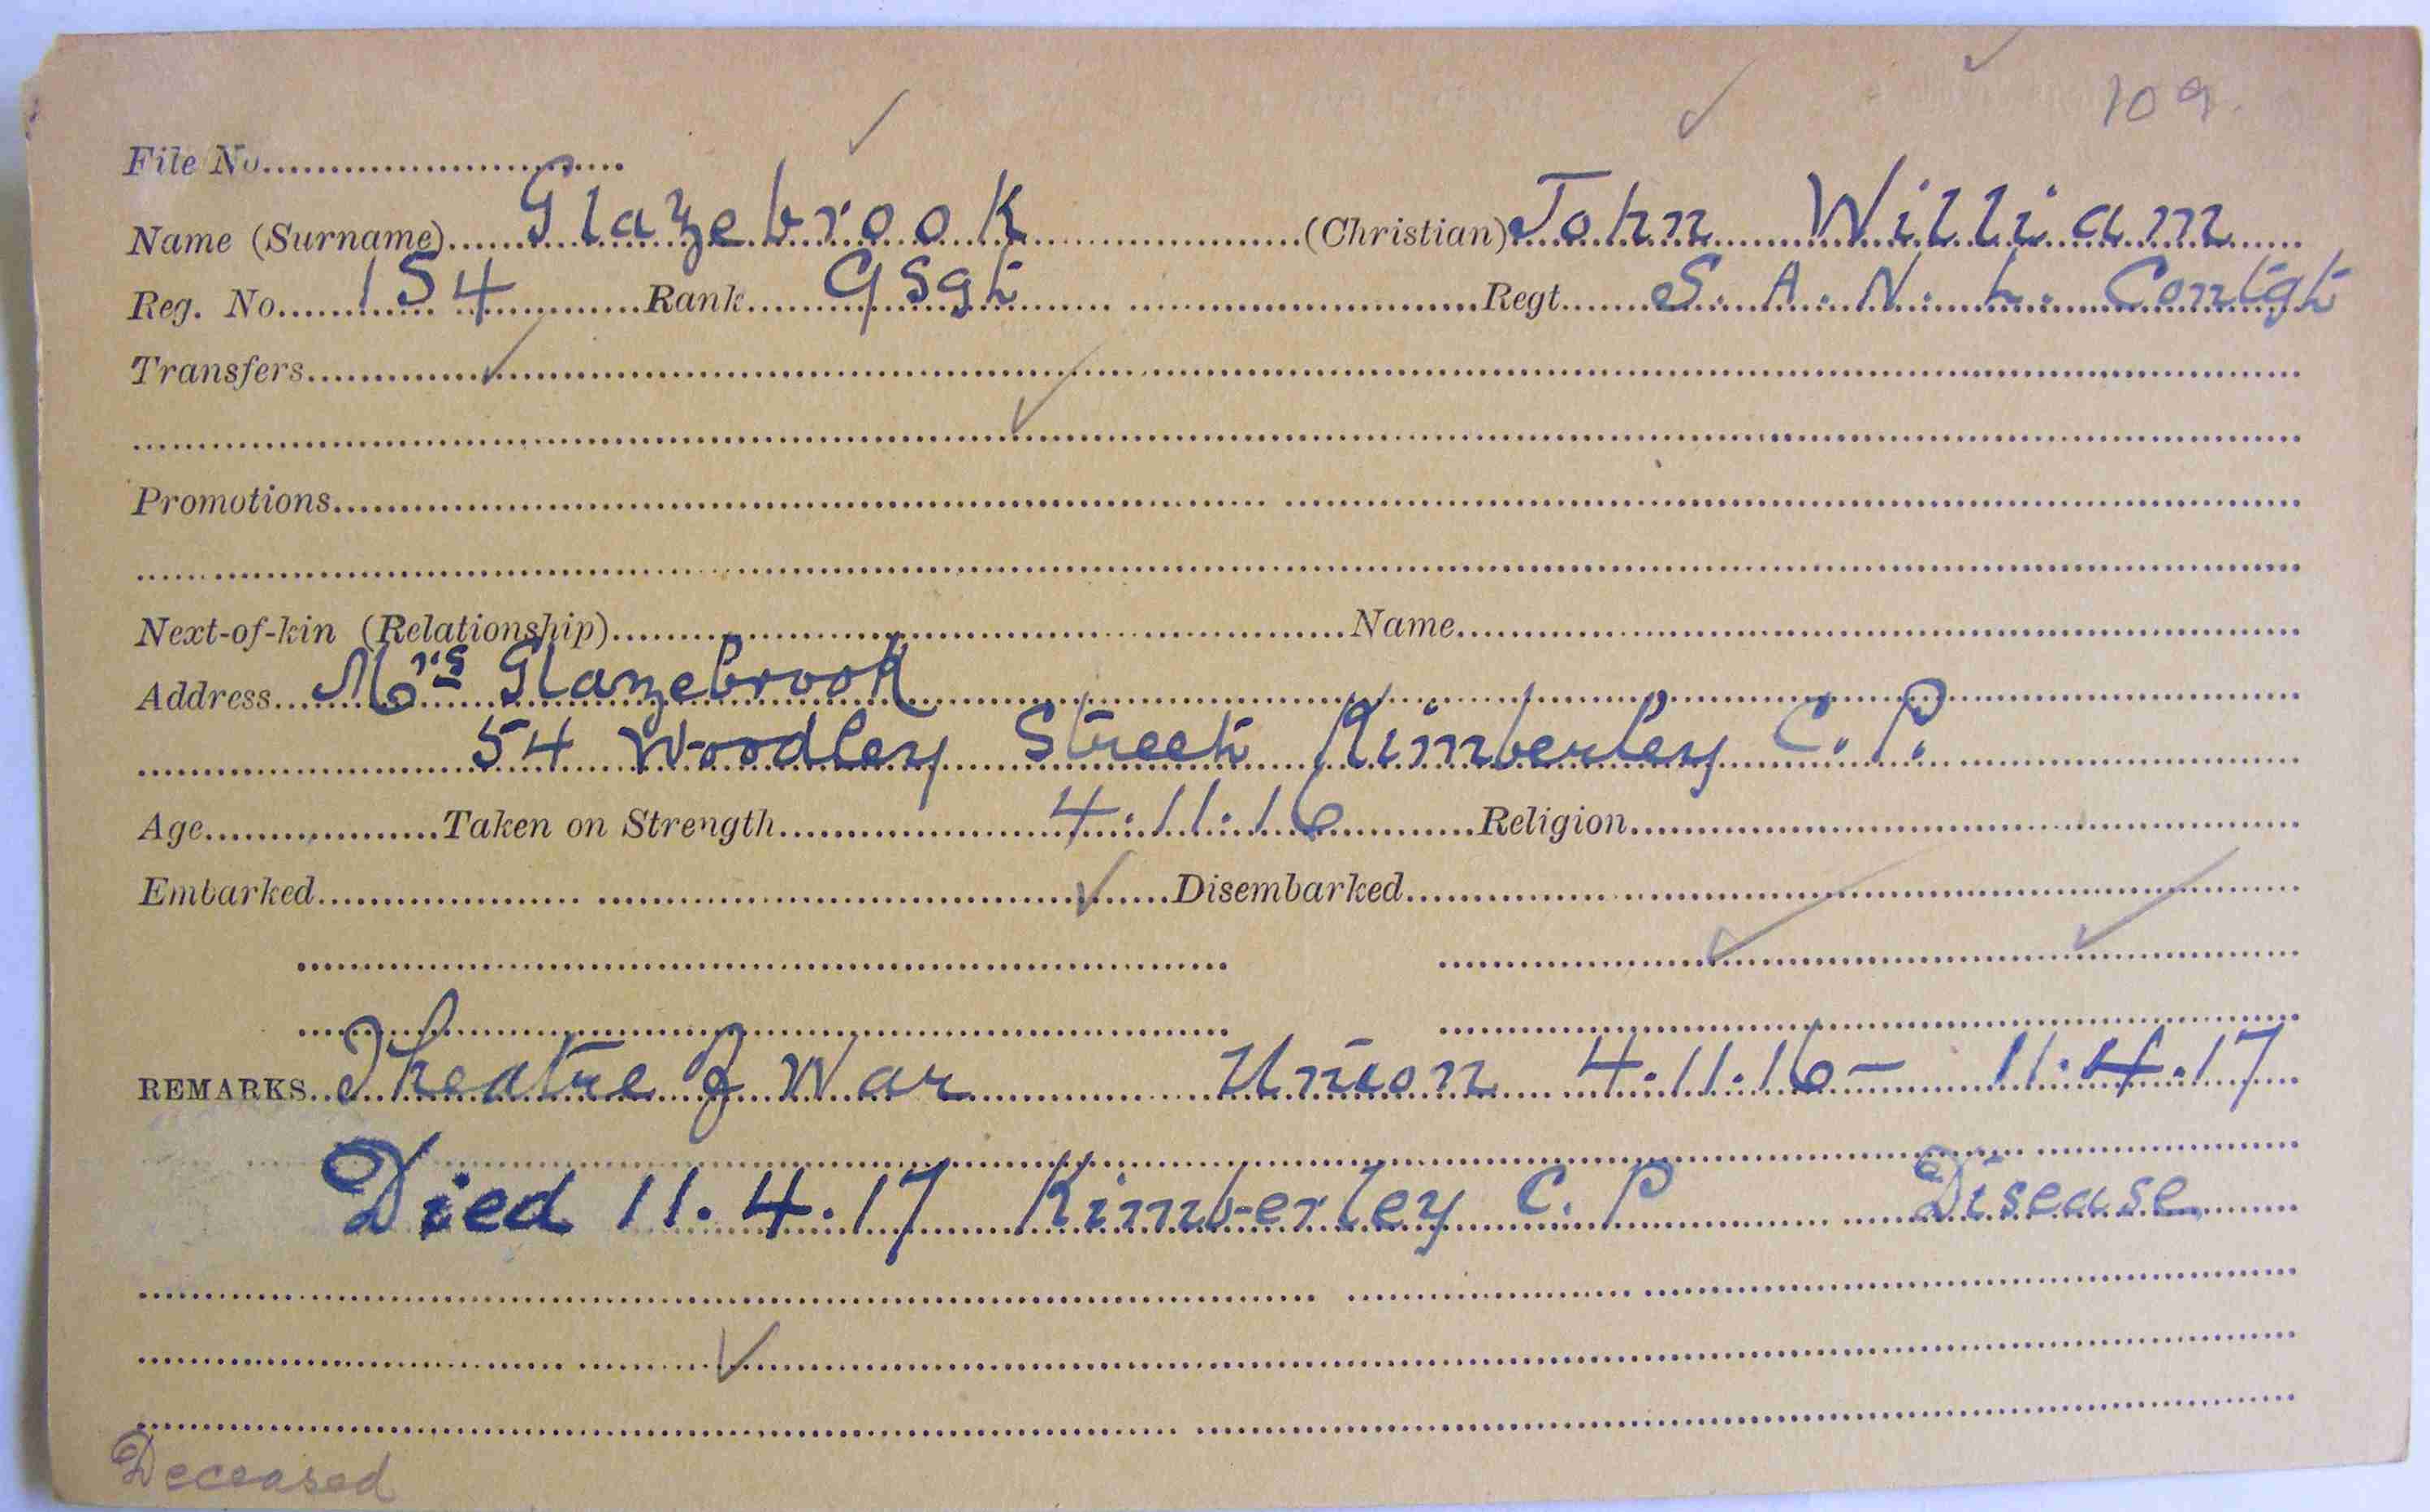 109.
File No.
Name (Surname) Glazebrook (Christian) John William
Reg. No. 154 Rank QSgt Regt. S. A. N. L. Contgt
Transfers
Promotions
Next-of-kin (Relationship) Name
Address Mrs Glazebrook
54 Woodley Street Kimberley C. P.
Age Taken on Strength 4.11.16 Religion
Embarked Disembarked
REMARKS. Theatre of War Union 4.11.16 – 11.4.17
Died 11.4.17 Kimberley C. P Disease
Deceased